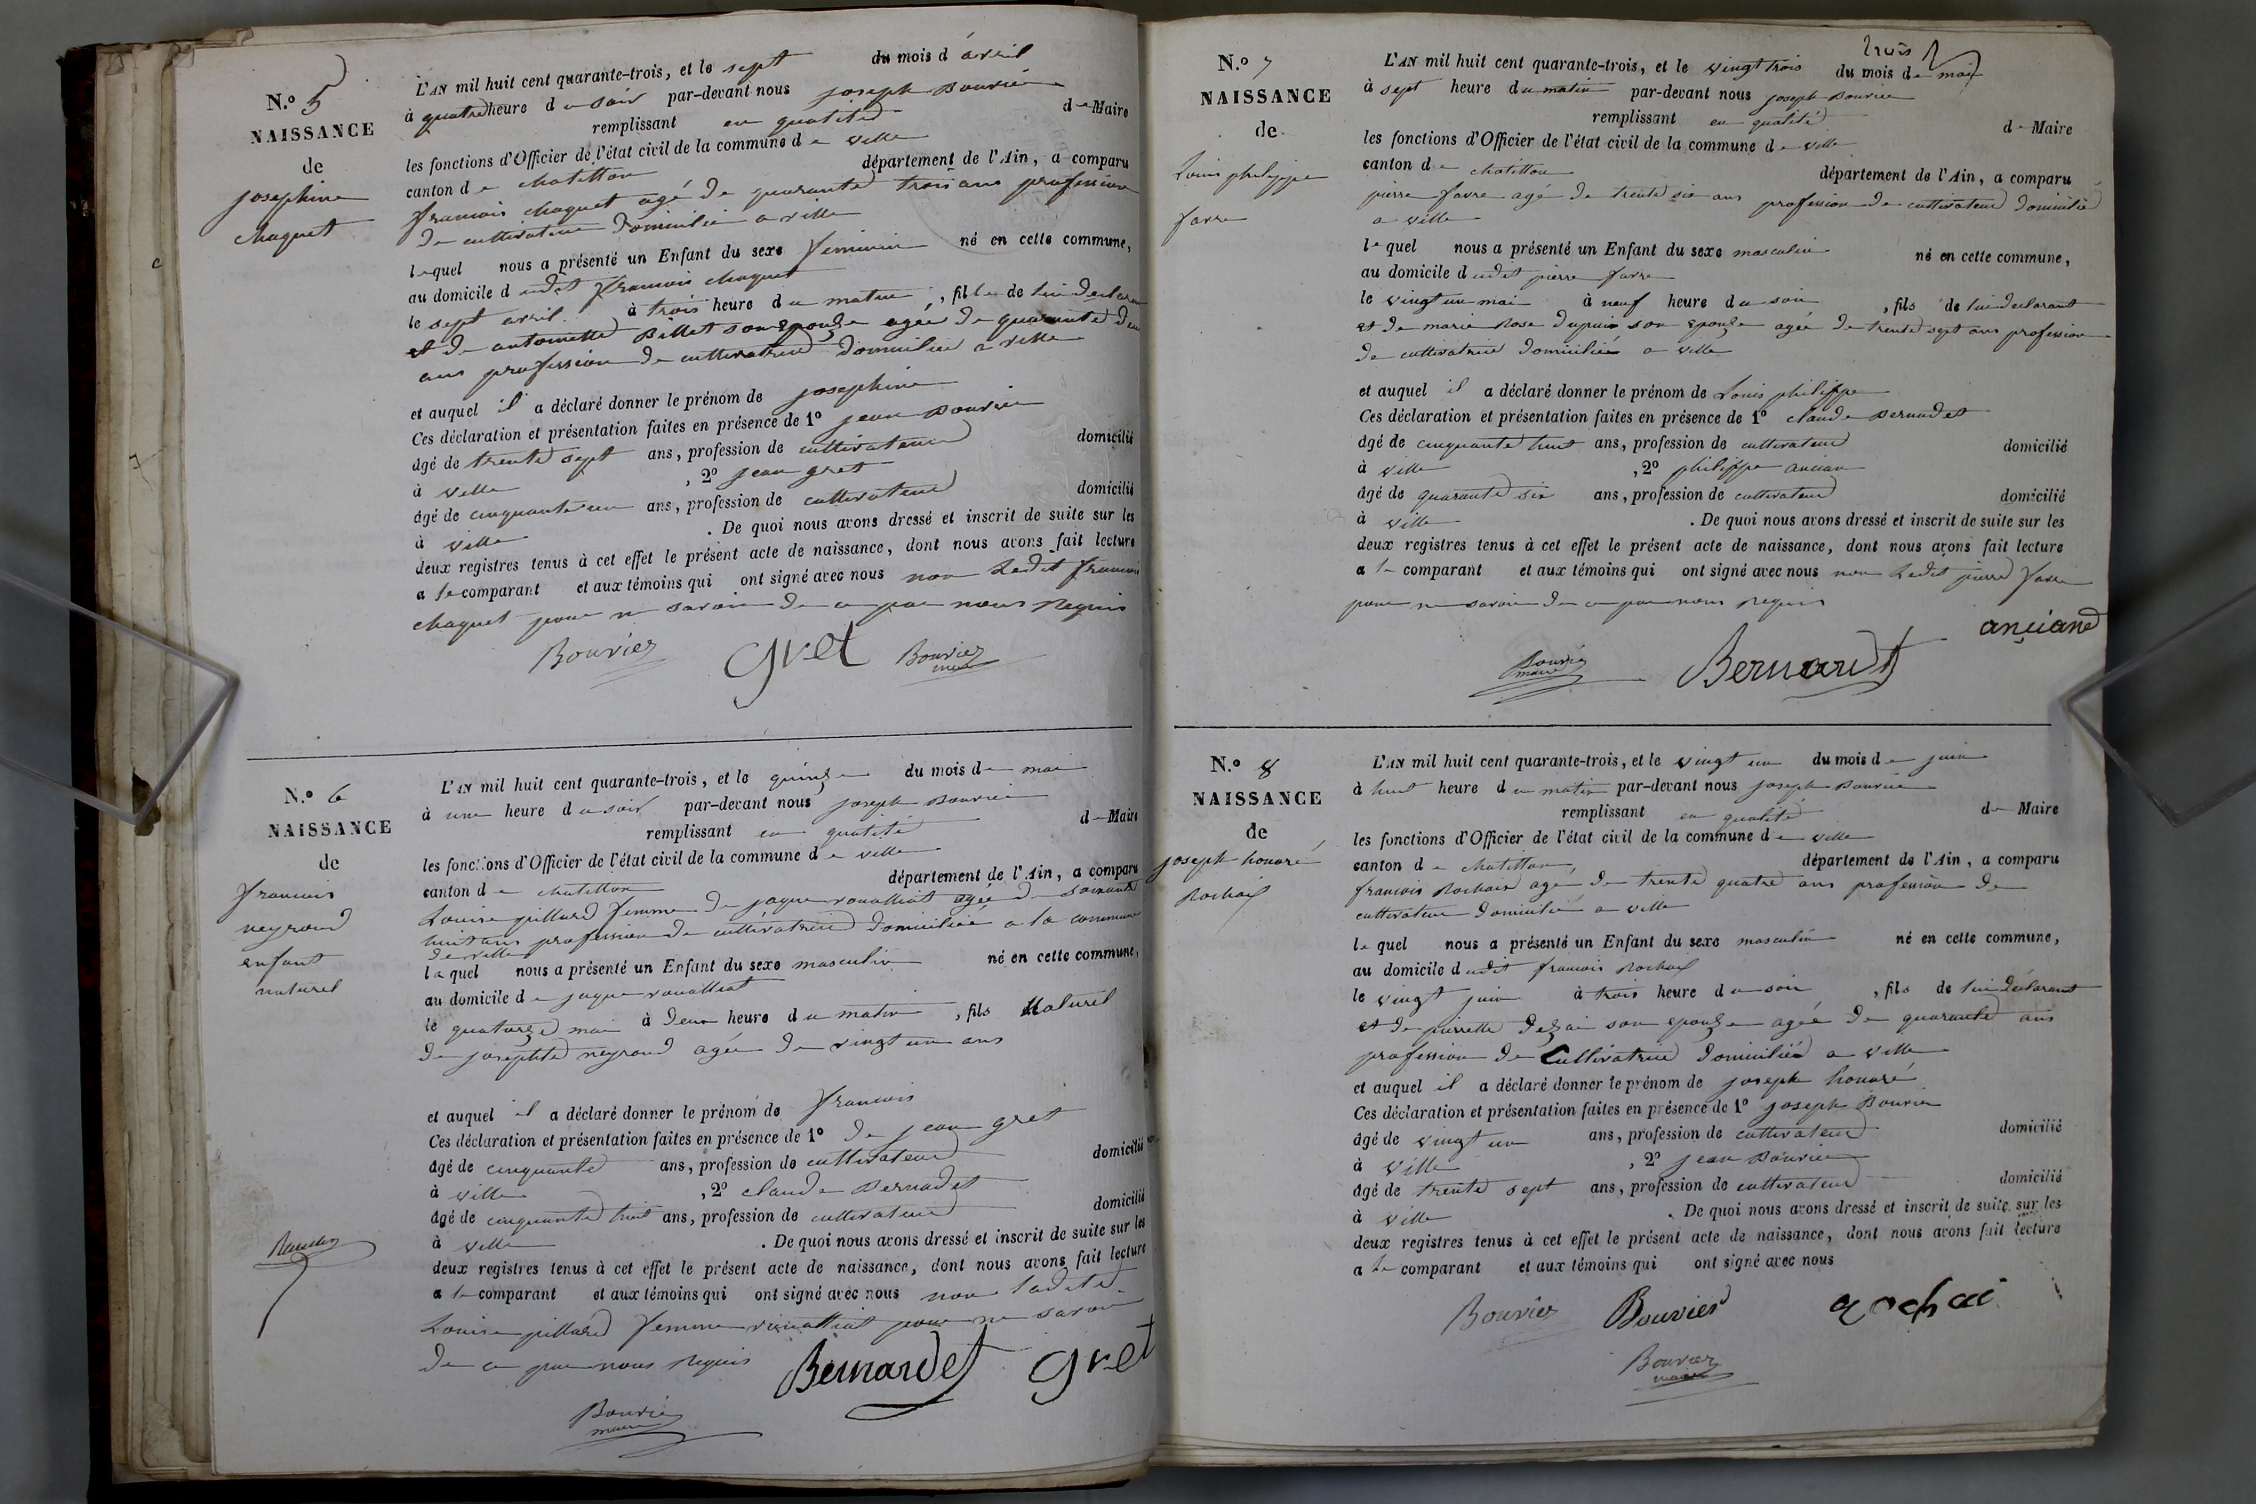 N.º 5
NAISSANCE
de
josephine
chaquet
L'AN mil huit cent quarante-trois, et le sept du mois d'avril
à quatre heure du soir par-devant nous joseph Bouvier
remplissant en qualité de Maire
les fonctions d'Officier de l'état civil de la commune de ville
canton de chatillon département de l'Ain, a comparu
francois chaquet agé de quarante trois ans profession
de cultivateur domicilié a ville
lequel nous a présenté un Enfant du sexe feminin né en cette commune,
au domicile dudit francois chaquet
le sept avril à trois heure du matin, fille de lui declarant
et de antoinette Billet son epouse agée de quarante deux
ans profession de cultivatrice domiciliée a ville
et auquel il a déclaré donner le prénom de josephine
Ces déclaration et présentation faites en présence de 1º jean Bouvier
âgé de trente sept ans, profession de cultivateur domicilié
à ville, 2º jean gret
âgé de cinquante un ans, profession de cultivateur domicilié
à ville. De quoi nous avons dressé et inscrit de suite sur les
deux registres tenus à cet effet le présent acte de naissance, dont nous avons fait lecture
a le comparant et aux témoins qui ont signé avec nous non Ledit francois
chaquet pour ne savoir de ce par nous requis
Bouvier gret Bouvier
maire
N.º 6
NAISSANCE
de
francois
neyroud
enfant
naturel
L'AN mil huit cent quarante-trois, et le quinze du mois de mai
à une heure du soir par-devant nous joseph Bouvier
remplissant en qualité de Maire
les fonctions d'Officier de l'état civil de la commune de ville
canton de chatillon département de l'Ain, a comparu
Louise pillard femme de jaque rouallat agée de soixante
huit ans profession de cultivatrice domiciliée a la commune
de ville
laquel nous a présenté un Enfant du sexe masculin né en cette commune,
au domicile de jaque rouallat
le quatorze mai à deux heure du matin, fils Naturel
de josephte neyroud agée de vingt un ans
et auquel il a déclaré donner le prénom de francois
Ces déclaration et présentation faites en présence de 1º de jean gret
âgé de cinquante ans, profession de cultivateur domicilié
à ville, 2º claude Bernadet
âgé de cinquante huit ans, profession de cultivateur domicilié
à ville. De quoi nous avons dressé et inscrit de suite sur les
deux registres tenus à cet effet le présent acte de naissance, dont nous avons fait lecture
a le comparant et aux témoins qui ont signé avec nous non ladite
Louise pillard femme rouallat pour ne savoir
de ce par nous requis Bernardet gret
Bouvier
maire
N.º 7
NAISSANCE
de
Louis philippe
favre
trois
L'AN mil huit cent quarante-trois, et le vingt trois du mois de mai
à sept heure du matin par-devant nous joseph Bouvier
remplissant en qualité de Maire
les fonctions d'Officier de l'état civil de la commune de ville
canton de chatillon département de l'Ain, a comparu
pierre favre agé de trente six ans profession de cultivateur domicilié
a ville
lequel nous a présenté un Enfant du sexe masculin né en cette commune,
au domicile dudit pierre favre
le vingt un mai à neuf heure du soir, fils de lui declarant
et de marie Rose Dupuis son epouse agée de trente sept ans profession
de cultivatrice domiciliée a ville
et auquel il a déclaré donner le prénom de Louis philippe
Ces déclaration et présentation faites en présence de 1º claude Bernadet
âgé de cinquante huit ans, profession de cultivateur domicilié
à ville, 2º philippe ancian
âgé de quarante six ans, profession de cultivateur domicilié
à ville. De quoi nous avons dressé et inscrit de suite sur les
deux registres tenus à cet effet le présent acte de naissance, dont nous avons fait lecture
a le comparant et aux témoins qui ont signé avec nous non Ledit pierre favre
pour ne savoir de ce par nous requis
anciane
Bouvier
maire
Bernardet
N.º 8
NAISSANCE
de
joseph honoré
Rochaix
L'AN mil huit cent quarante-trois, et le vingt un du mois de juin
à huit heure du matin par-devant nous joseph Bouvier
remplissant en qualité de Maire
les fonctions d'Officier de l'état civil de la commune de ville
canton de chatillon département de l'Ain, a comparu
francois Rochaix agé de trente quatre ans profession de
cultivateur domicilié a ville
lequel nous a présenté un Enfant du sexe masculin né en cette commune,
au domicile dudit francois Rochaix
le vingt juin à trois heure du soir, fils de lui déclarant
et de pierrette dezai son epouse agée de quarante ans
profession de Cultivatrice domiciliée a ville
et auquel il a déclaré donner le prénom de joseph honoré
Ces déclaration et présentation faites en présence de 1º joseph Bouvier
âgé de vingt un ans, profession de cultivateur domicilié
à ville, 2º jean Bouvier
âgé de trente sept ans, profession de cultivateur domicilié
à ville. De quoi nous avons dressé et inscrit de suite sur les
deux registres tenus à cet effet le présent acte de naissance, dont nous avons fait lecture
a le comparant et aux témoins qui ont signé avec nous
Bouvier Bouvier rochai
Bouvier
maire